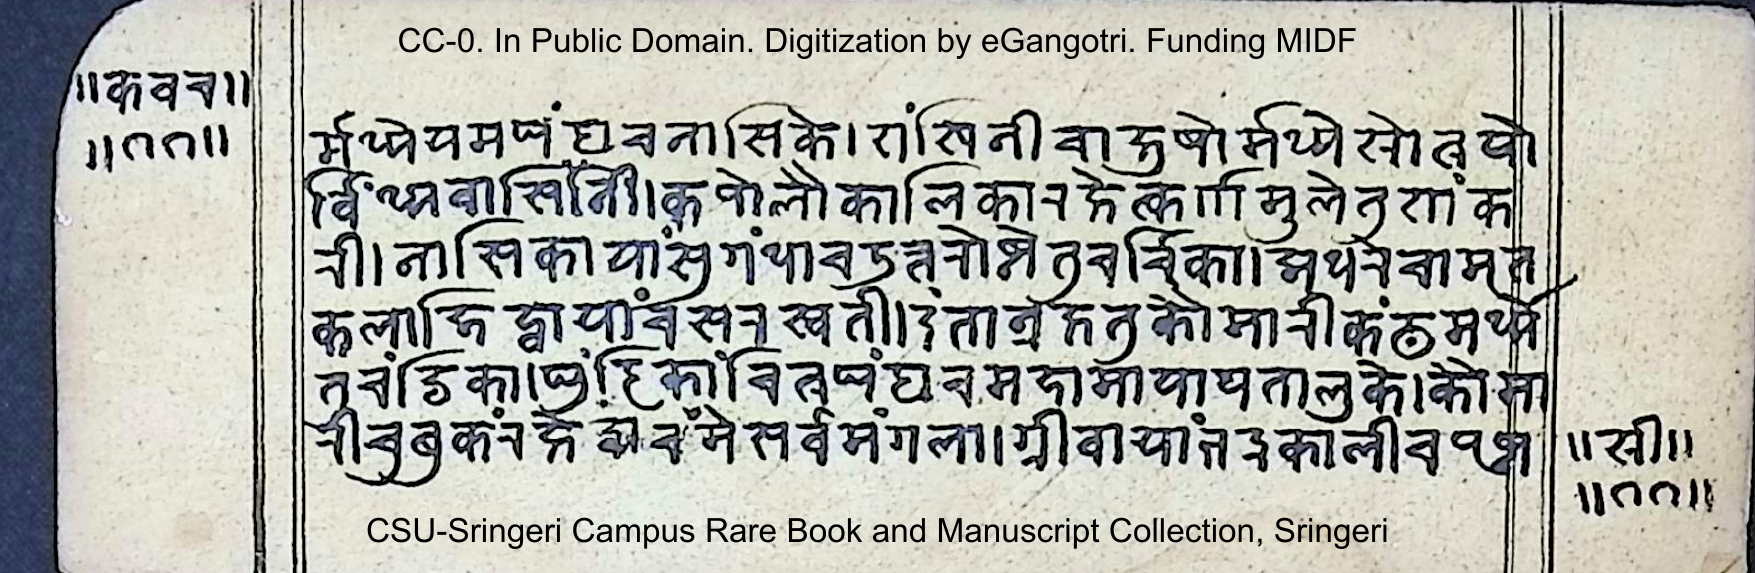 CC-0. In Public Domain. Digitization by eGangotri. Funding MIDF
॥कवच॥
॥११॥
र्मध्येयमघंटाचनासिके।शंखिनीचाक्षुषोर्मध्येस्रोतयो
र्विंध्यवासिनी।कपोलौकालिकारक्षेत्कर्णमुलेतुशांक
री।नासिकायांसुगंधाचउत्तरोष्ठेतुचर्चिका।अधरेचामृत
कलाजिह्वायांचसरस्वती।दंतान्रक्षतुकौमारीकंठमध्ये
तुचंडिका।घंटिकांचित्रघंटाचमहामायाचतालुके।कामा
रीचुबुकंरक्षेद्वाचंमेसर्वमंगला।ग्रीवायांभद्रकालीचपृष्ठ
॥सी॥
॥११॥
CSU-Sringeri Campus Rare Book and Manuscript Collection, Sringeri